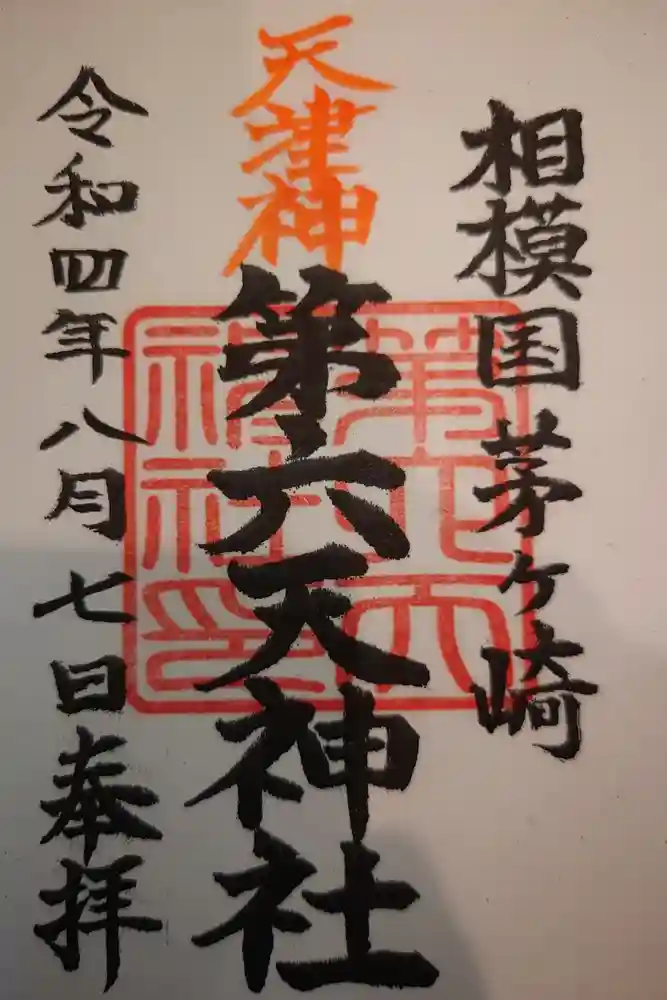 相模国茅ヶ崎
天津神
第六天神社
第六天
神社印
令和四年八月七日奉拝